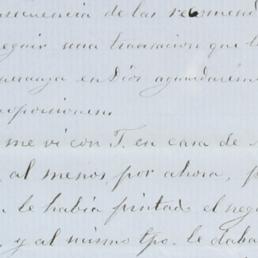 secuencia de las recomend
seguir una transacion que t
peranza en Dios aguardarem
sposiciones.
me vi con T. en casa de
, al menos por ahora, p
le había pintado el nego
, y al mismo tpo. le daba